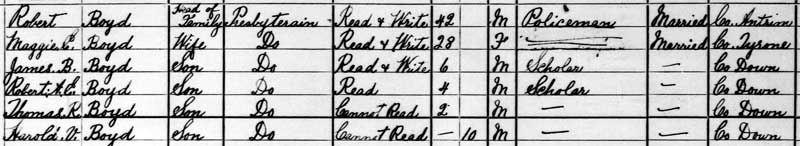 Robert Boyd Head of Family Presbyterain Read & Write 42 M Policeman Married Co. Antrim
Maggie E. Boyd Wife Do Read & Write 28 F Married Co. Tyrone
James. B. Boyd Son Do Read & Write 6 M Scholar — Co Down
Robert. A. C. Boyd Son Do Read 4 M Scholar — Co Down
Thomas. R. Boyd Son Do Cannot Read 2 M — — Co Down
Harold. V. Boyd Son Do Cannot Read — 10 M — — Co Down